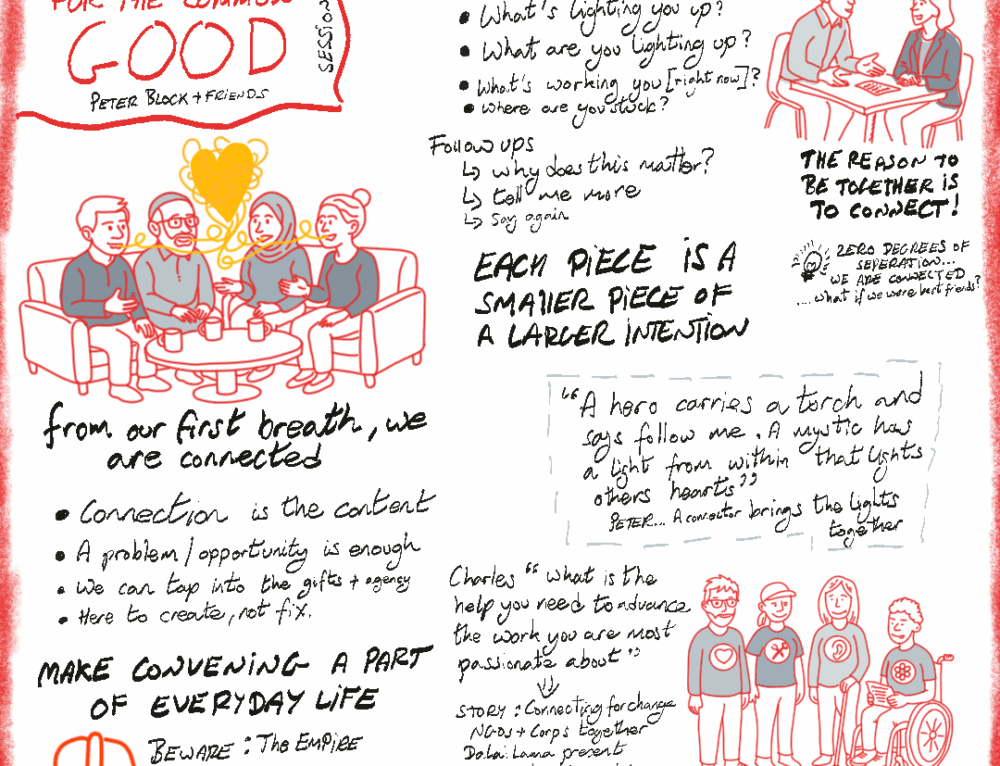 FOR THE COMMON
GOOD
SESSION
PETER BLOCK + FRIENDS
from our first breath, we
are connected
• Connection is the content
• A problem/opportunity is enough
• We can tap into the gifts + agency
• Here to create, not fix.
MAKE CONVENING A PART
OF EVERYDAY LIFE
BEWARE : The EMPIRE
• What's lighting you up?
• What are you lighting up?
• What's working you [right now]?
• where are you stuck?
Follow ups
↳ why does this matter?
↳ tell me more
↳ Say again
EACH PIECE IS A
SMALLER PIECE OF
A LARGER INTENTION
THE REASON TO
BE TOGETHER IS
TO CONNECT!
ZERO DEGREES OF
SEPERATION...
WE ARE CONNECTED
....what if we were best friends?
"A hero carries a torch and
says follow me. A mystic has
a light from within that lights
others hearts"
PETER... A convector brings the lights
together
Charles "what is the
help you need to advance
the work you are most
passionate about"
STORY : Connecting for change
NGOs + Corps together
Dalai Lama present